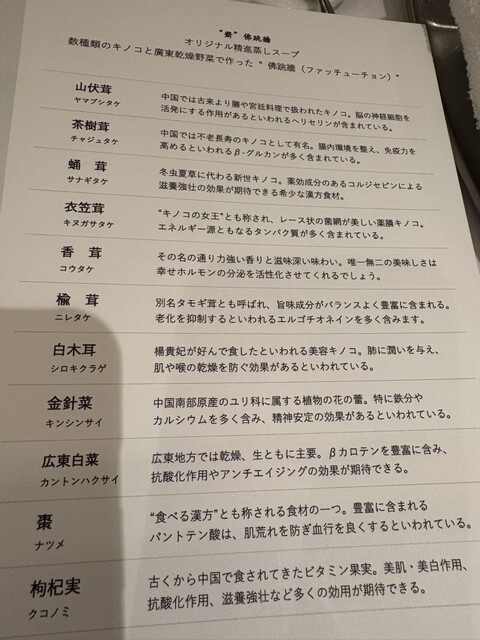 "齋" 佛跳牆
オリジナル精進蒸しスープ
数種類のキノコと廣東乾燥野菜で作った " 佛跳牆（ファッチューチョン）"
山伏茸
ヤマブシタケ
中国では古来より膳や宮廷料理で扱われたキノコ。脳の神経細胞を
活発にする作用があるといわれるヘリセリンが含まれている。
茶樹茸
チャジュタケ
中国では不老長寿のキノコとして有名。腸内環境を整え、免疫力を
高めるといわれるβ-グルカンが多く含まれている。
蛹 茸
サナギタケ
冬虫夏草に代わる新世キノコ。薬効成分のあるコルジセピンによる
滋養強壮の効果が期待できる希少な漢方食材。
衣笠茸
キヌガサタケ
"キノコの女王"とも称され、レース状の菌網が美しい薬膳キノコ。
エネルギー源ともなるタンパク質が多く含まれている。
香 茸
コウタケ
その名の通り力強い香りと滋味深い味わい。唯一無二の美味しさは
幸せホルモンの分泌を活性化させてくれるでしょう。
楡 茸
ニレタケ
別名タモギ茸とも呼ばれ、旨味成分がバランスよく豊富に含まれる。
老化を抑制するといわれるエルゴチオネインを多く含みます。
白木耳
シロキクラゲ
楊貴妃が好んで食したといわれる美容キノコ。肺に潤いを与え、
肌や喉の乾燥を防ぐ効果があるといわれている。
金針菜
キンシンサイ
中国南部原産のユリ科に属する植物の花の蕾。特に鉄分や
カルシウムを多く含み、精神安定の効果があるといわれている。
広東白菜
カントンハクサイ
広東地方では乾燥、生ともに主要。βカロテンを豊富に含み、
抗酸化作用やアンチエイジングの効果が期待できる。
棗
ナツメ
"食べる漢方"とも称される食材の一つ。豊富に含まれる
パントテン酸は、肌荒れを防ぎ血行を良くするといわれている。
枸杞実
クコノミ
古くから中国で食されてきたビタミン果実。美肌・美白作用、
抗酸化作用、滋養強壮など多くの効用が期待できる。